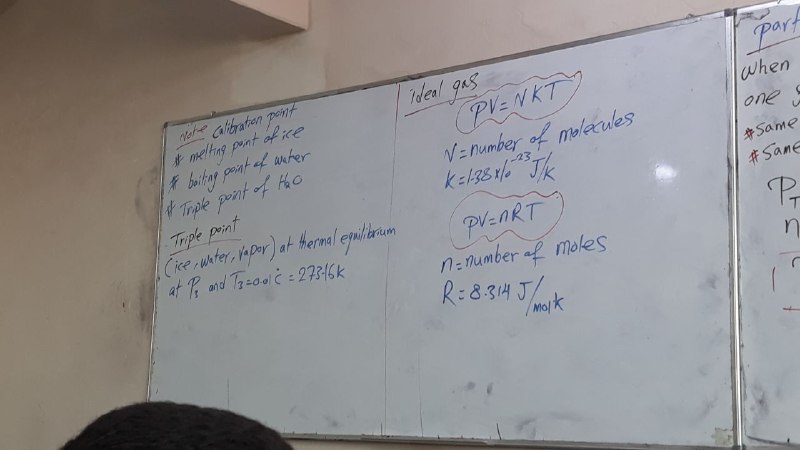 Note Calibration point
# melting point of ice
# boiling point of water
# Triple point of H2O
Triple point
(ice, water, vapor) at thermal equilibrium
at P3 and T3=0.01°C = 273.16K
ideal gas
PV=NKT
N=number of molecules
K=1.38×10^-23 J/K
PV=nRT
n=number of moles
R=8.314 J/mol k
part
when
one
#same
#same
PT
n